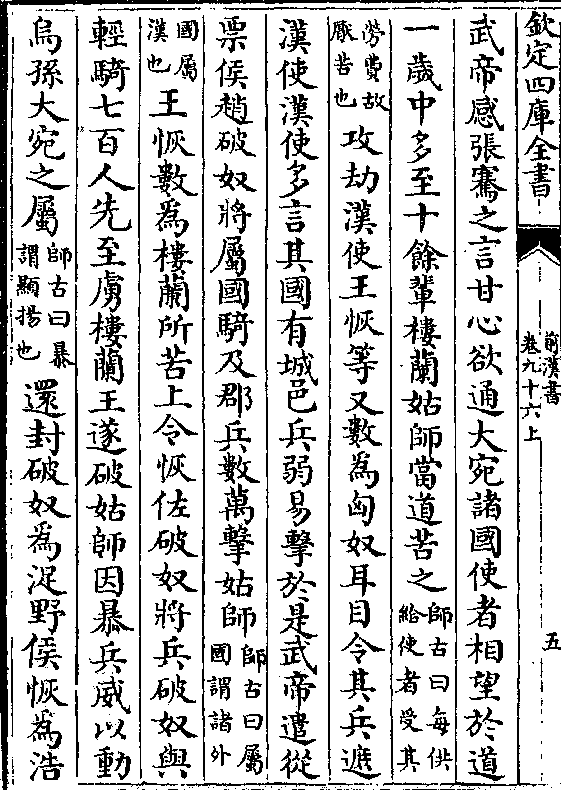 欽定四庫全書
前漢書
卷九十六上
五
武帝感張騫之言甘心欲通大宛諸國使者相望於道
一歲中多至十餘輩樓蘭姑師當道苦之師古曰每供給使者受其
勞費故厭苦也攻劫漢使王恢等又數為匈奴耳目令其兵遮
漢使漢使多言其國有城邑兵弱易擊於是武帝遣從
票侯趙破奴將屬國騎及郡兵數萬擊姑師師古曰屬國謂諸外
國屬漢也王恢數為樓蘭所苦上令恢佐破奴將兵破奴與
輕騎七百人先至虜樓蘭王遂破姑師因暴兵威以動
烏孫大宛之屬師古曰暴謂顯揚也還封破奴為浞野侯恢為浩